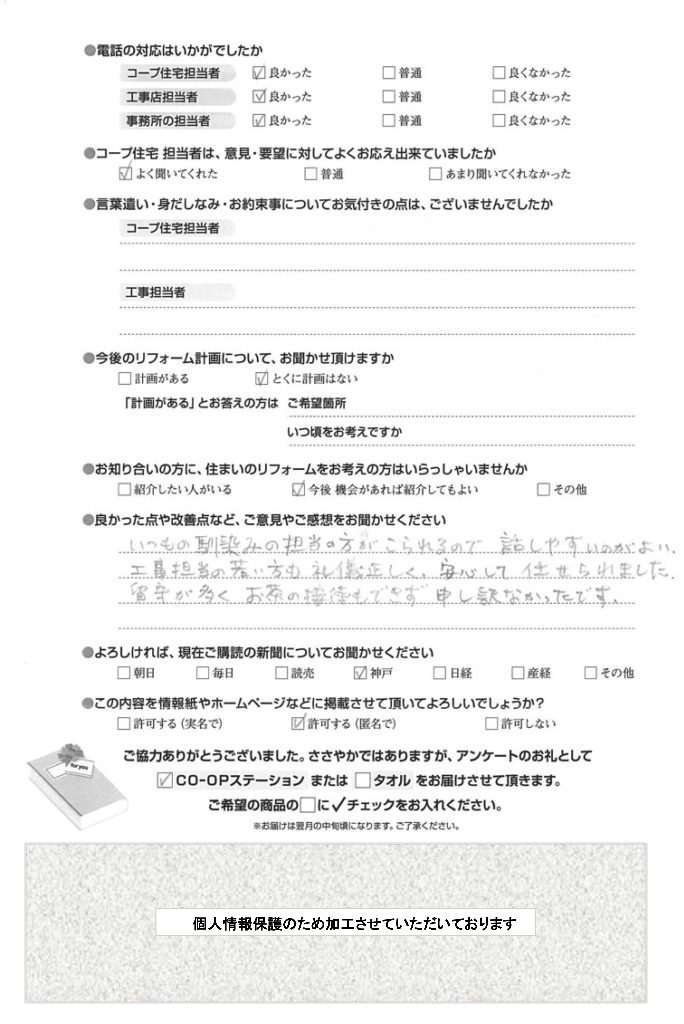 ●電話の対応はいかがでしたか
コープ住宅担当者 ☑良かった □普通 □良くなかった
工事店担当者 ☑良かった □普通 □良くなかった
事務所の担当者 ☑良かった □普通 □良くなかった
●コープ住宅 担当者は、意見・要望に対してよくお応え出来ていましたか
☑よく聞いてくれた □普通 □あまり聞いてくれなかった
●言葉遣い・身だしなみ・お約束事についてお気付きの点は、ございませんでしたか
コープ住宅担当者
工事担当者
●今後のリフォーム計画について、お聞かせ頂けますか
□計画がある ☑とくに計画はない
「計画がある」とお答えの方は ご希望箇所
いつ頃をお考えですか
●お知り合いの方に、住まいのリフォームをお考えの方はいらっしゃいませんか
□紹介したい人がいる ☑今後 機会があれば紹介してもよい □その他
●良かった点や改善点など、ご意見やご感想をお聞かせください
いつもの馴染みの担当の方がこられるので 話しやすいのがよい。
工事担当の若い方も 礼儀正しく、安心して 仕せられました。
留守が多く お茶の接待もできず 申し訳なかったです。
●よろしければ、現在ご購読の新聞についてお聞かせください
□朝日 □毎日 □読売 ☑神戸 □日経 □産経 □その他
●この内容を情報紙やホームページなどに掲載させて頂いてよろしいでしょうか?
□許可する（実名で） ☑許可する（匿名で） □許可しない
for you
ご協力ありがとうございました。ささやかではありますが、アンケートのお礼として
☑CO-OPステーション または □タオル をお届けさせて頂きます。
ご希望の商品の□に✓チェックをお入れください。
※お届けは翌月の中旬頃になります。ご了承ください。
個人情報保護のため加工させていただいております